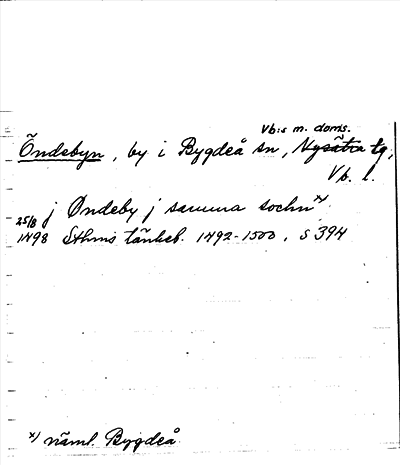 Vb:s m. doms.
Öndebyn, by i Bygdeå sn, Nysätra tg,
Vb. l.
j Øndeby j samma sochn x/
25/8
1498 Sthms tänkeb. 1492-1500, s 394
x/ näml. Bygdeå.